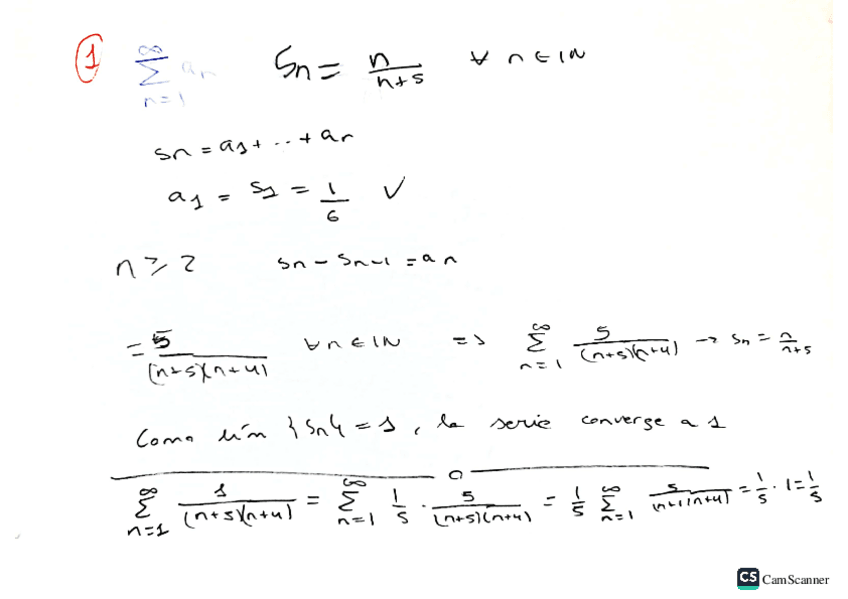 1 ∞ Σ n=1 an Sn = n/(n+5) ∀ n ∈ IN
sn = a1 + .. + an
a1 = s1 = 1/6 ✓
n ≥ 2 sn - sn-1 = an
= 5/((n+5)(n+4)) ∀ n ∈ IN => ∞ Σ n=1 5/((n+5)(n+4)) → sn = n/(n+5)
Como lím {sn} = 1, la serie converge a 1
∞ Σ n=1 1/((n+5)(n+4)) = ∞ Σ n=1 1/5 · 5/((n+5)(n+4)) = 1/5 ∞ Σ n=1 5/((n+5)(n+4)) = 1/5 · 1 = 1/5
CS CamScanner